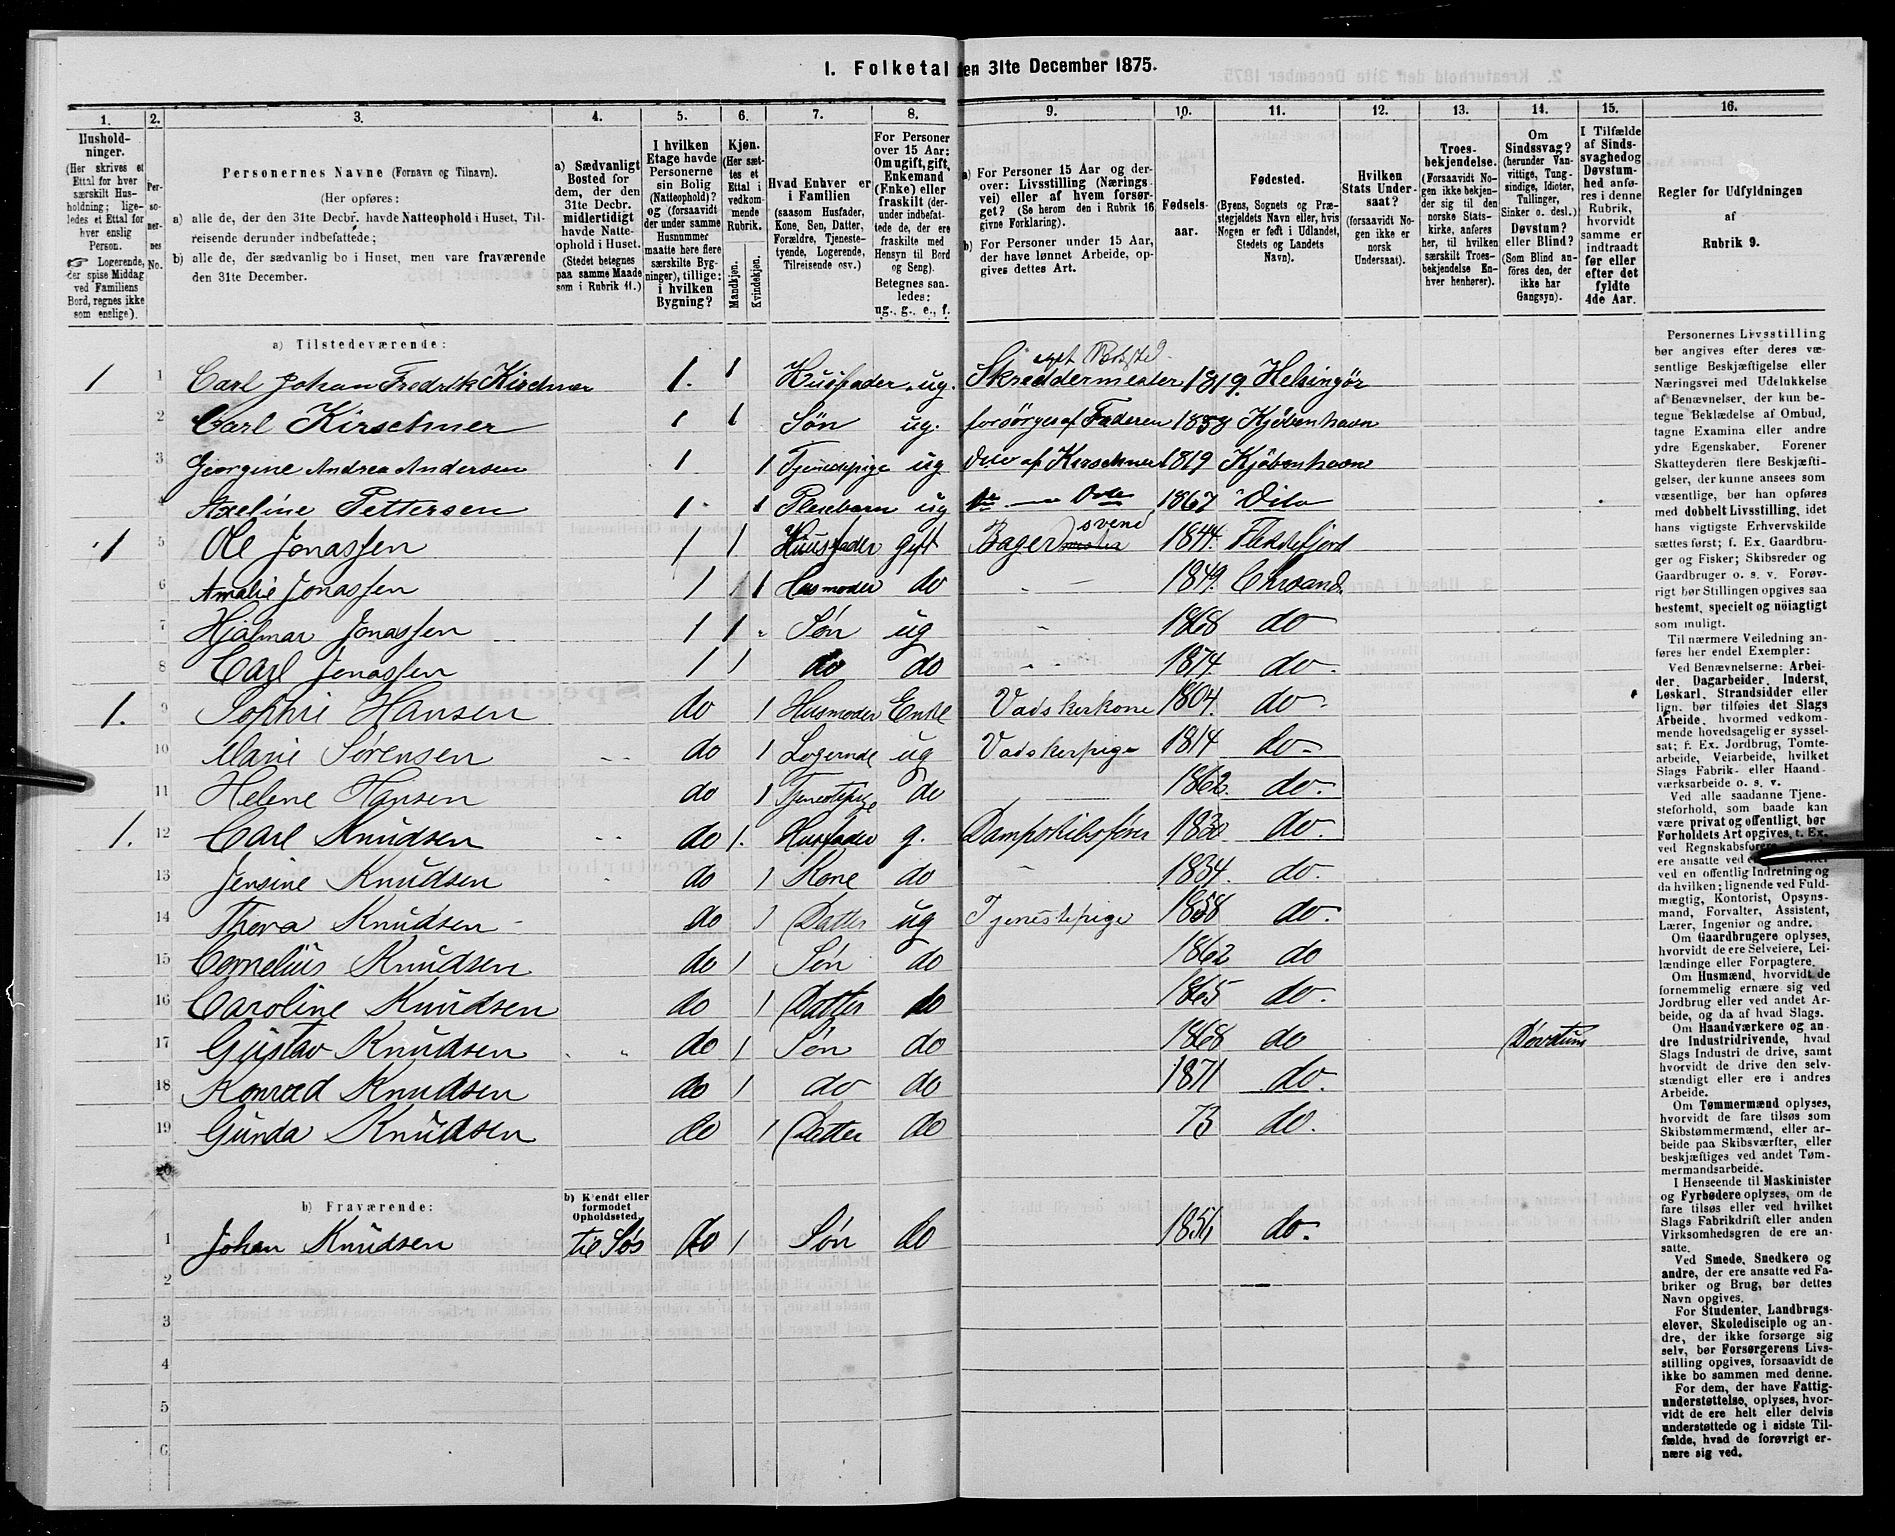 1. Folketal den 31te December 1875.
1. 2. 3. 4. 5. 6. 7. 8. 9. 10. 11. 12. 13. 14. 15. 16.
Hushold-
ninger.
(Her skrives et
Ettal for hver
særskilt Hus-
holdning; lige-
ledes et Ettal for
hver enslig
Person.
☞ Logerende,
der spise Middag
ved Familiens
Bord, regnes ikke
som enslige).
Per-
so-
ner-
nes
No.
Personernes Navne (Fornavn og Tilnavn).
(Her opføres:
a) alle de, der den 31te Decbr. havde Natteophold i Huset, Til-
reisende derunder indbefattede;
b) alle de, der sædvanlig bo i Huset, men vare fraværende
den 31te December.
a) Sædvanligt
Bosted for
dem, der den
31te Decbr.
midlertidigt
havde Natte-
ophold i Huset.
(Stedet betegnes
paa samme Maade
som i Rubrik 11.)
I hvilken
Etage havde
Personerne
sin Bolig
(Natteophold)?
og (forsaavidt
der under samme
Husnummer
maatte høre flere
særskilte Byg-
ninger), tillige:
i hvilken
Bygning?
Kjøn.
(Her sæt-
tes et
Ettal i
vedkom-
mende
Rubrik.
Mandkjøn.
Kvindekjøn.
Hvad Enhver er
i Familien
(saasom Husfader,
Kone, Søn, Datter,
Forældre, Tjeneste-
tyende, Logerende,
Tilreisende osv.)
For Personer
over 15 Aar:
Om ugift, gift,
Enkemand
(Enke) eller
fraskilt (der-
under indbefat-
tede de, der ere
fraskilte med
Hensyn til Bord
og Seng).
Betegnes saa-
ledes:
ug., g., e., f.
a) For Personer 15 Aar og der-
over: Livsstilling (Nærings-
vei) eller af hvem forsør-
get? (Se herom den i Rubrik 16
givne Forklaring).
b) For Personer under 15 Aar,
der have lønnet Arbeide, op-
gives dettes Art.
Fødsels-
aar.
Fødested.
(Byens, Sognets og Præ-
stegjeldets Navn eller, hvis
Nogen er født i Udlandet,
Stedets og Landets
Navn).
Hvilken
Stats Under-
saat?
(forsaavidt No-
gen ikke er
norsk
Undersaat).
Troes-
bekjendelse.
(Forsaavidt No-
gen ikke bekjen-
der sig til den
norske Stats-
kirke, anføres
her, til hvilken
særskilt Troes-
bekjendelse En-
hver henhører).
Om
Sindssvag?
(herunder Van-
vittige, Tung-
sindige, Idioter,
Tullinger,
Sinker o. desl.)
Døvstum?
eller Blind?
(Som Blind an-
føres den, der
ikke har
Gangsyn).
I Tilfælde
af Sinds-
svaghed og
Døvstum-
hed anfø-
res i denne
Rubrik,
hvorvidt
samme er
indtraadt
før eller
efter det
fyldte
4de Aar.
Regler for Udfyldningen
af
Rubrik 9.
a) Tilstedeværende:
eget Bosted
1 1 Carl Johan Fredrik Kirschner 1. 1 Husfader ug. Skræddermester 1819. Helsingør
2 Carl Kirschner 1 1 Søn ug. forsørges af Faderen 1858 Kjøbenhavn
3 Georgine Andrea Andersen 1 1 Tjenestepige ug 1819 Kjøbenhavn
4 Axeline Pettersen 1 1 Pleiebarn ug 1867 Dito
svend
1 5 Ole Jonassen 1 1 Huusfader gift Bagermester 1844. Flekkefjord
6 Amalie Jonassen 1 1 Husmoder do 1849. Chrsand.
7 Hjalmar Jonassen 1 1 Søn ug 1868 do
8 Carl Jonassen 1 1 do do 1874. do.
1. 9 Sophie Hansen do 1 Husmoder Enke Vadskerkone 1804. do.
10 Marie Sørensen do 1 Logernde ug Vadskerpige 1814 do.
11 Helene Hansen do 1 Tjenestepige do 1862. do.
1. 12 Carl Knudsen do 1. Husfader g. Dampskibsfører 1830 do.
13 Jensine Knudsen do 1 Kone do 1834. do.
14 Thora Knudsen do 1 Datter ug Tjenestepige 1858 do.
15 Cornelius Knudsen do 1 Søn do 1862 do
16 Caroline Knudsen do 1 Datter do 1865 do.
17 Gustav Knudsen do 1 Søn do 1868 do Døvstum
18 Konrad Knudsen do 1 do do 1871 do.
19 Gunda Knudsen do 1 Datter do 73 do.
20
b) Fraværende:
b) Kjendt eller
formodet
Opholdssted.
1 Johan Knudsen til Søs do 1 Søn do 1856 do.
2
3
4
5
6
Personernes Livsstilling
bør angives efter deres væ-
sentlige Beskjæftigelse eller
Næringsvei med Udelukkelse
af Benævnelser, der kun be-
tegne Beklædelse af Ombud,
tagne Examina eller andre
ydre Egenskaber. Forener
Skatteyderen flere Beskjæfti-
gelser, der kunne ansees som
væsentlige, bør han opføres
med dobbelt Livsstilling, idet
hans vigtigste Erhvervskilde
sættes først; f. Ex. Gaardbru-
ger og Fisker; Skibsreder og
Gaardbruger o. s. v. Forøv-
rigt bør Stillingen opgives saa
bestemt, specielt og nöiagtigt
som muligt.
Til nærmere Veiledning an-
føres her endel Exempler:
Ved Benævnelserne: Arbei-
der, Dagarbeider, Inderst,
Løskarl, Strandsidder eller
lign. bør tilføies det Slags
Arbeide, hvormed vedkom-
mende hovedsagelig er syssel-
sat; f. Ex. Jordbrug, Tomte-
arbeide, Veiarbeide, hvilket
Slags Fabrik- eller Haand-
værksarbeide o. s. v.
Ved alle saadanne Tjene-
steforhold, som baade kan
være privat og offentligt, bør
Forholdets Art opgives, t. Ex.
ved Regnskabsførere,
ere ansatte ved
ved en offentlig Indretning og
da hvilken; lignende ved Fuld-
mægtig, Kontorist, Opsyns-
mand, Forvalter, Assistent,
Lærer, Ingeniør og andre.
Om Gaardbrugere oplyses,
hvorvidt de ere Selveiere, Lei-
lændinge eller Forpagtere.
Om Husmænd, hvorvidt de
fornemmelig ernære sig ved
Jordbrug eller ved andet Ar-
beide, og da af hvad Slags.
Om Haandværkere og an-
dre Industridrivende, hvad
Slags Industri de drive, samt
hvorvidt de drive den selv-
stændigt eller ere i andres
Arbeide.
Om Tømmermænd oplyses,
hvorvidt de fare tilsøs som
Skibstømmermænd, eller ar-
beide paa Skibsværfter, eller
beskjæftiges ved andet Tøm-
mermandsarbeide.
I Henseende til Maskinister
og Fyrbødere oplyses, om de
fare tilsøs eller ved hvilket
Slags Fabrikdrift eller anden
Virksomhedsgren de ere an-
satte.
Ved Smede, Snedkere og
andre, der ere ansatte ved Fa-
briker og Brug, bør dettes
Navn opgives.
For Studenter, Landbrugs-
elever, Skoledisciple og an-
dre, der ikke forsørge sig
selv, bør Forsørgerens Livs-
stilling opgives, forsaavidt de
ikke bo sammen med denne.
For dem, der have Fattig-
understøttelse, oplyses, hvor-
vidt de ere helt eller delvis
understøttede og i sidste Til-
fælde, hvad de forøvrigt er-
nære sig ved.